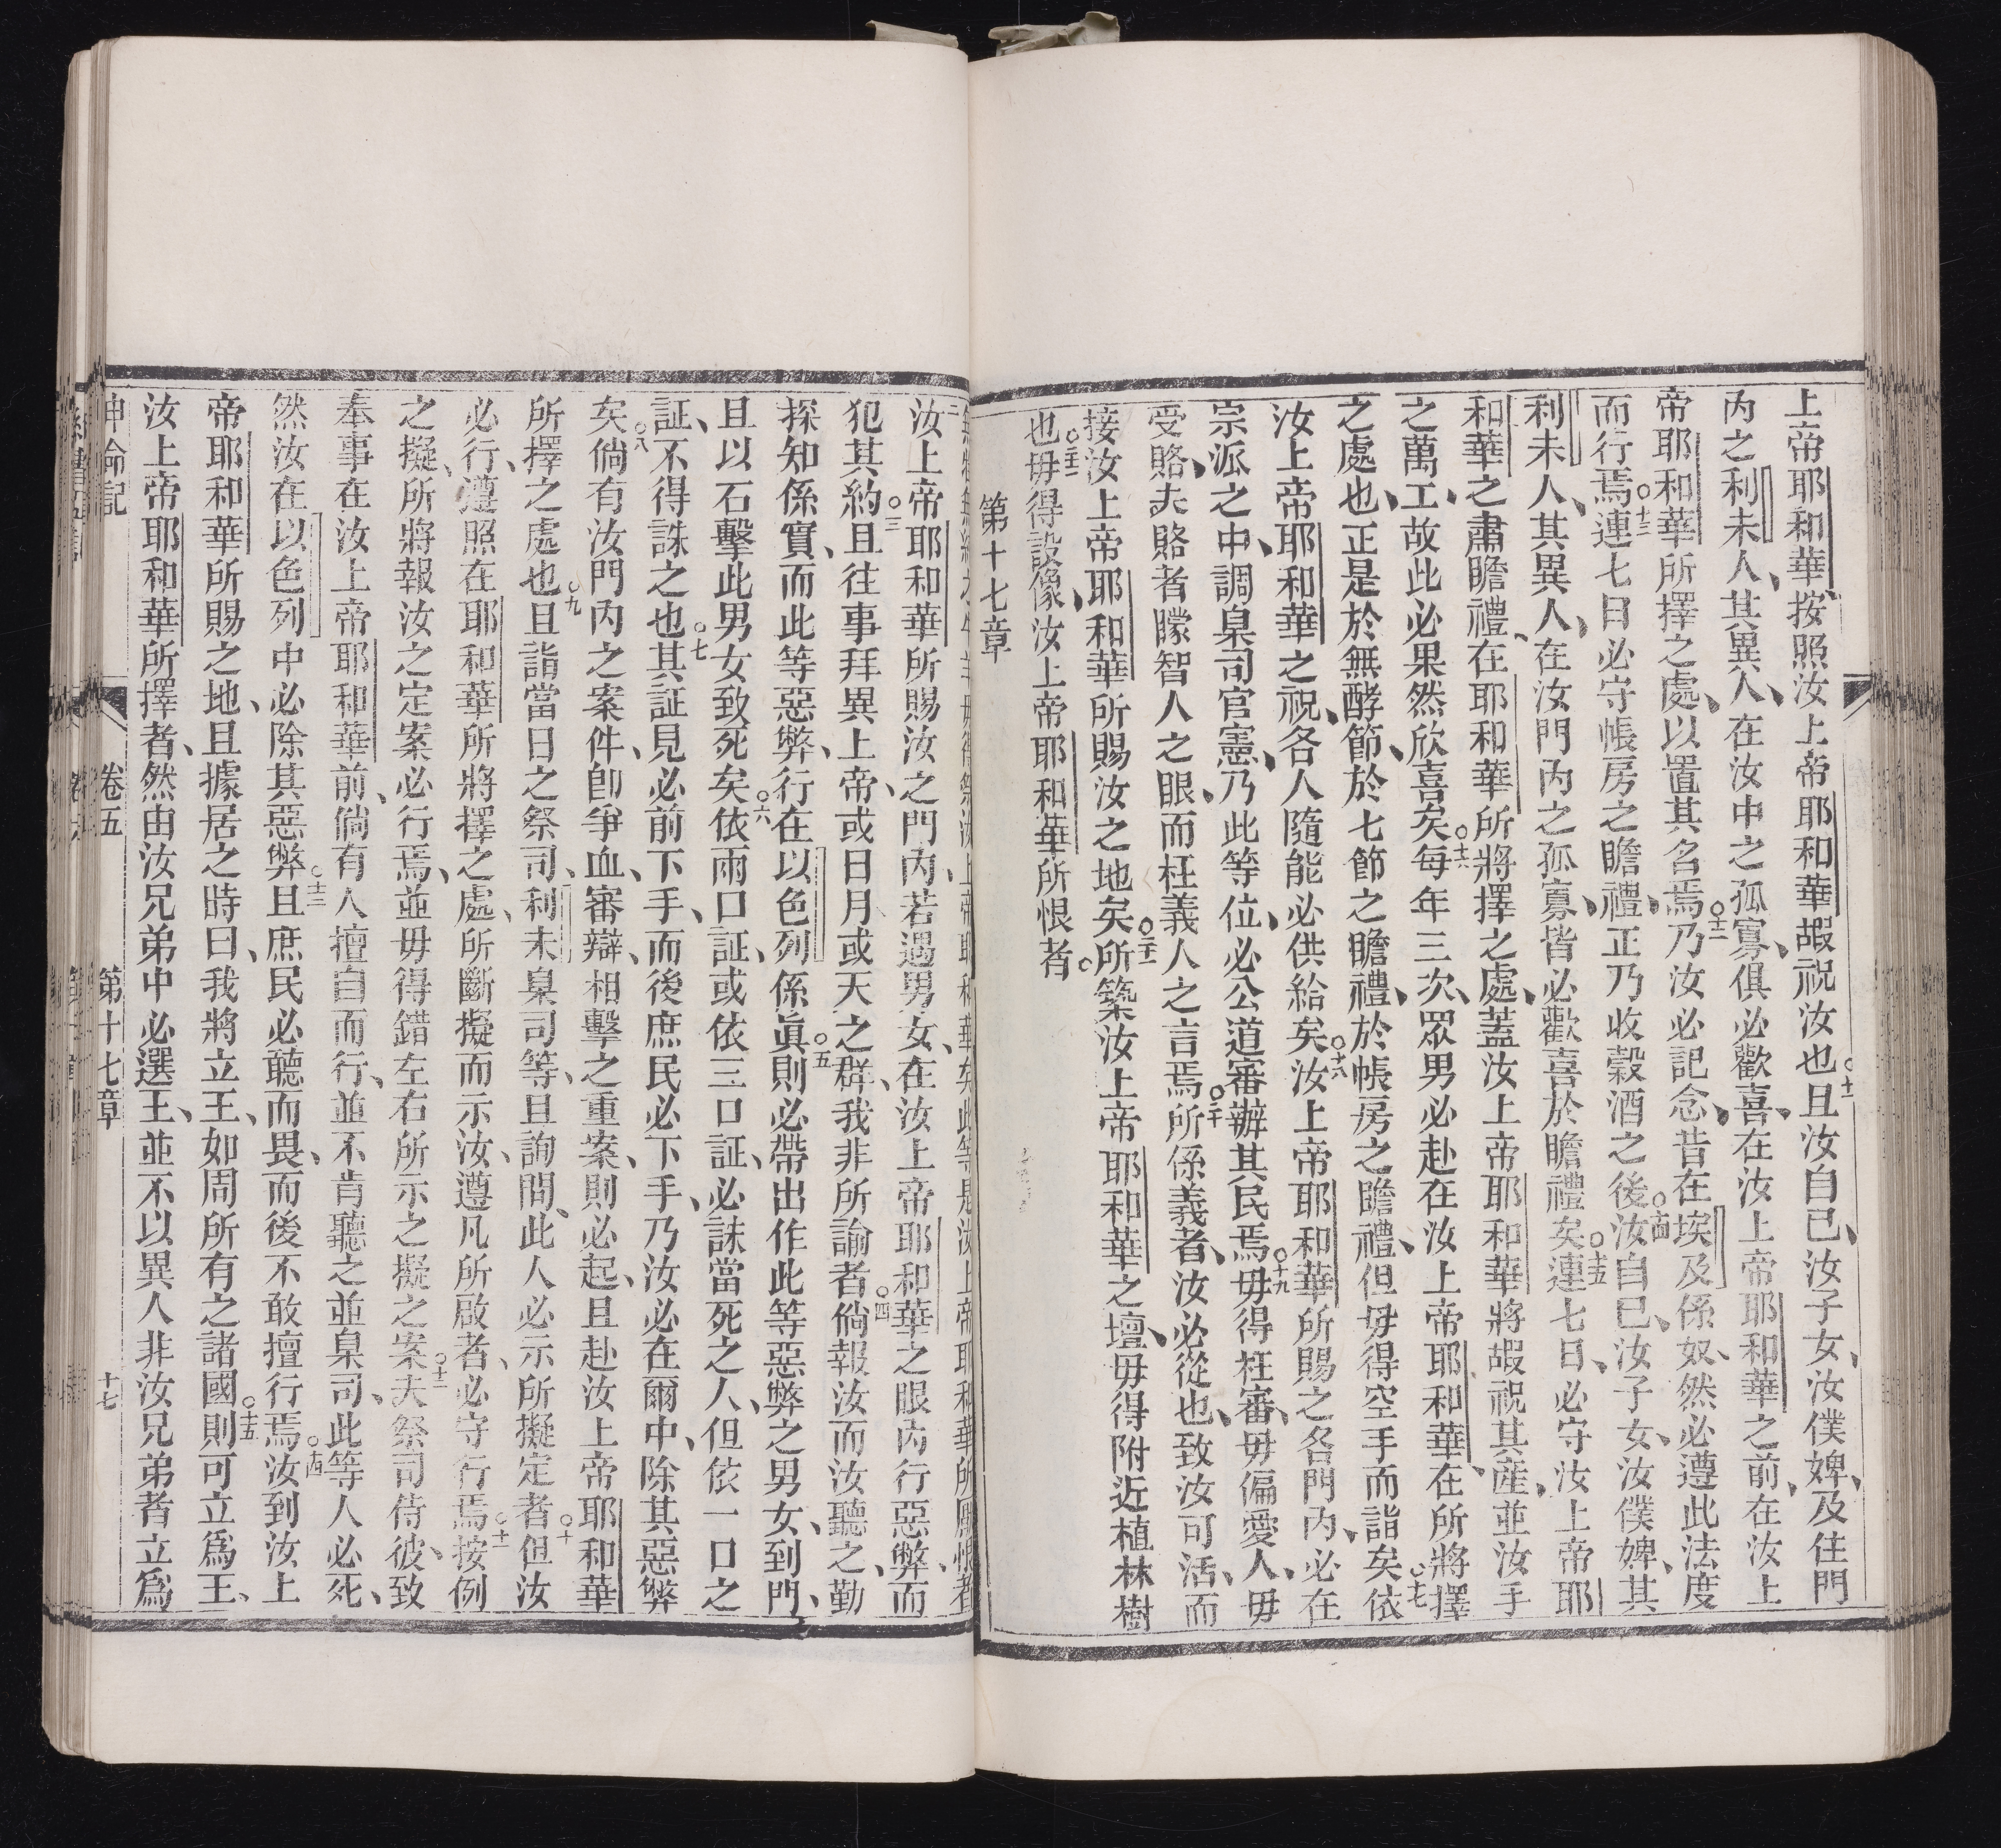 上帝耶和華按照汝上帝耶和華嘏祝汝也○十一且汝自己、汝子女、汝僕婢、及住門
內之利未人、其異人、在汝中之孤寡、俱必歡喜、在汝上帝耶和華之前、在汝上
帝耶和華所擇之處、以置其名焉○十二乃汝必記念、昔在埃及係奴、然必遵此法度
而行焉○十三連七日必守帳房之瞻禮、正乃收穀酒之後○十四汝自己、汝子女、汝僕婢、其
利未人、其異人、在汝門內之孤寡、皆必歡喜於瞻禮矣○十五連七日、必守汝上帝耶
和華之肅瞻禮、在耶和華所將擇之處、蓋汝上帝耶和華將嘏祝其產、並汝手
之萬工、故此必果然欣喜矣○十六每年三次、眾男必赴在汝上帝耶和華、在所將擇
之處也、正是於無酵節、於七節之瞻禮、於帳房之瞻禮、但毋得空手而詣矣○十七依
汝上帝耶和華之祝、各人隨能必供給矣○十八汝上帝耶和華所賜之各門內、必在
宗派之中、調臬司官憲、乃此等位、必公道審辦其民焉○十九毋得枉審、毋偏愛人、毋
受賂、夫賂者矇智人之眼、而枉義人之言焉○二十所係義者、汝必從也、致汝可活、而
接汝上帝耶和華所賜汝之地矣○二十一所築汝上帝耶和華之壇、毋得附近植林樹
也○二十二毋得設像、汝上帝耶和華所恨者。
第十七章
汝上帝耶和華所賜汝之門內、若遇男女、在汝上帝耶和華之眼內行惡弊、而
犯其約○三且往事拜異上帝、或日月或天之群、我非所諭者○四倘報汝而汝聽之、勤
探知係實、而此等惡弊、行在以色列、係眞○五則必帶出作此等惡弊之男女、到門、
且以石擊此男女致死矣○六依兩口証、或依三口証、必誅當死之人、但依一口之
証、不得誅之也○七其証見必前下手、而後庶民必下手、乃汝必在爾中、除其惡弊
矣○八倘有汝門內之案件、卽爭血、審辯、相擊之重案、則必起、且赴汝上帝耶和華
所擇之處也○九且詣當日之祭司、利未臬司等、且詢問、此人必示所擬定者○十但汝
必行、遵照在耶和華所將擇之處、所斷擬而示汝、遵凡所啟者、必守行焉○十一按例
之擬、所將報汝之定案必行焉、並毋得錯左右所示之擬之案○十二夫祭司侍彼、致
奉事在汝上帝耶和華前、倘有人擅自而行、並不肯聽之並臬司、此等人必死、
然汝在以色列中必除其惡弊○十三且庶民必聽而畏、而後不敢擅行焉○十四汝到汝上
帝耶和華所賜之地、且據居之時曰、我將立王、如周所有之諸國○十五則可立爲王、
汝上帝耶和華所擇者、然由汝兄弟中必選王、並不以異人非汝兄弟者立爲
申命記 卷五 第十七章 十七